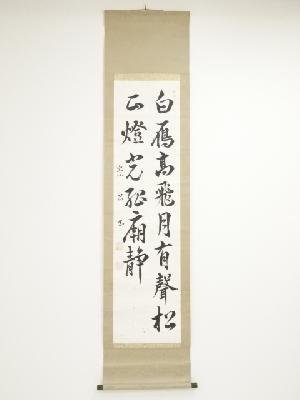 白鴈高飛月有聲松
燈光孤廟靜